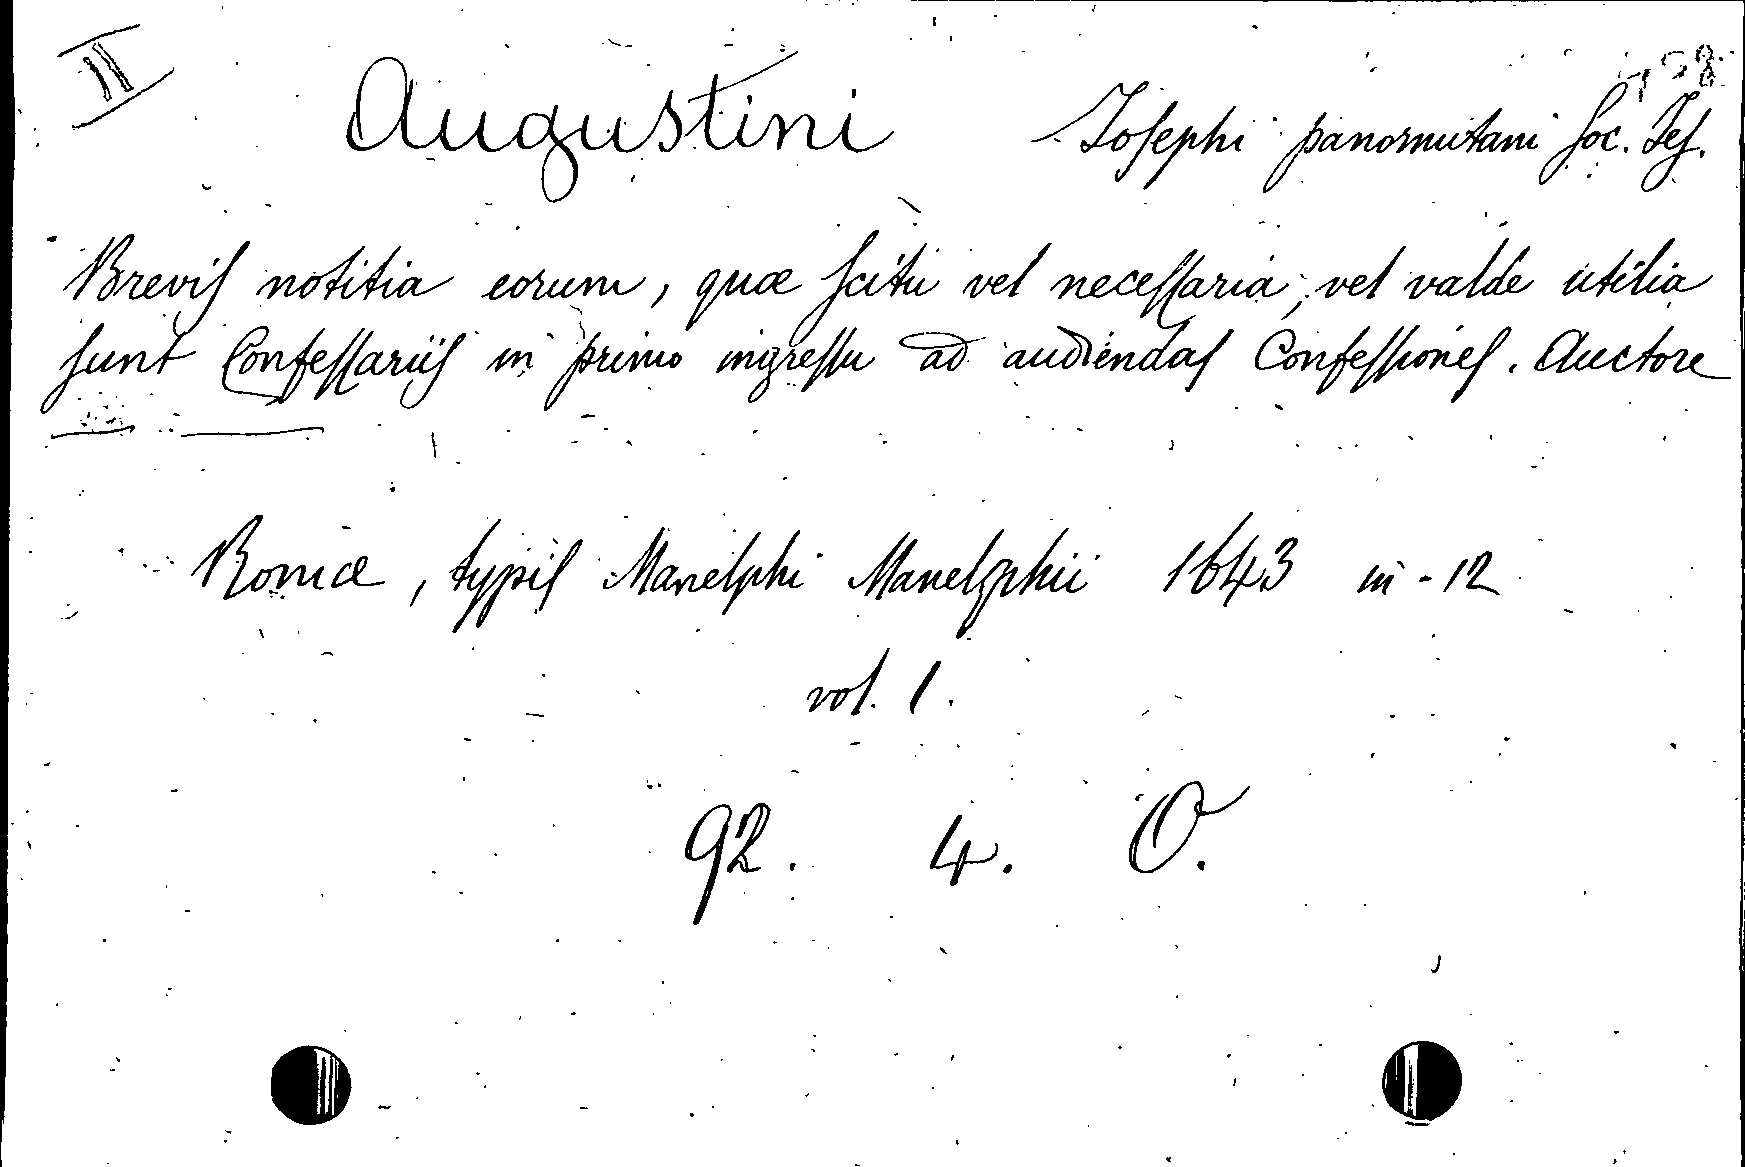 II
Augustini Josephi panormitani Soc. Jes.
Brevis notitia eorum, quæ scitu vel necessaria, vel valde utilia
sunt Confessariis in primo ingressu ad audiendas Confessiones. Auctore
Romæ, typis Manelphi Manelphii 1643 in-12
vol. 1.
92. 4. O.